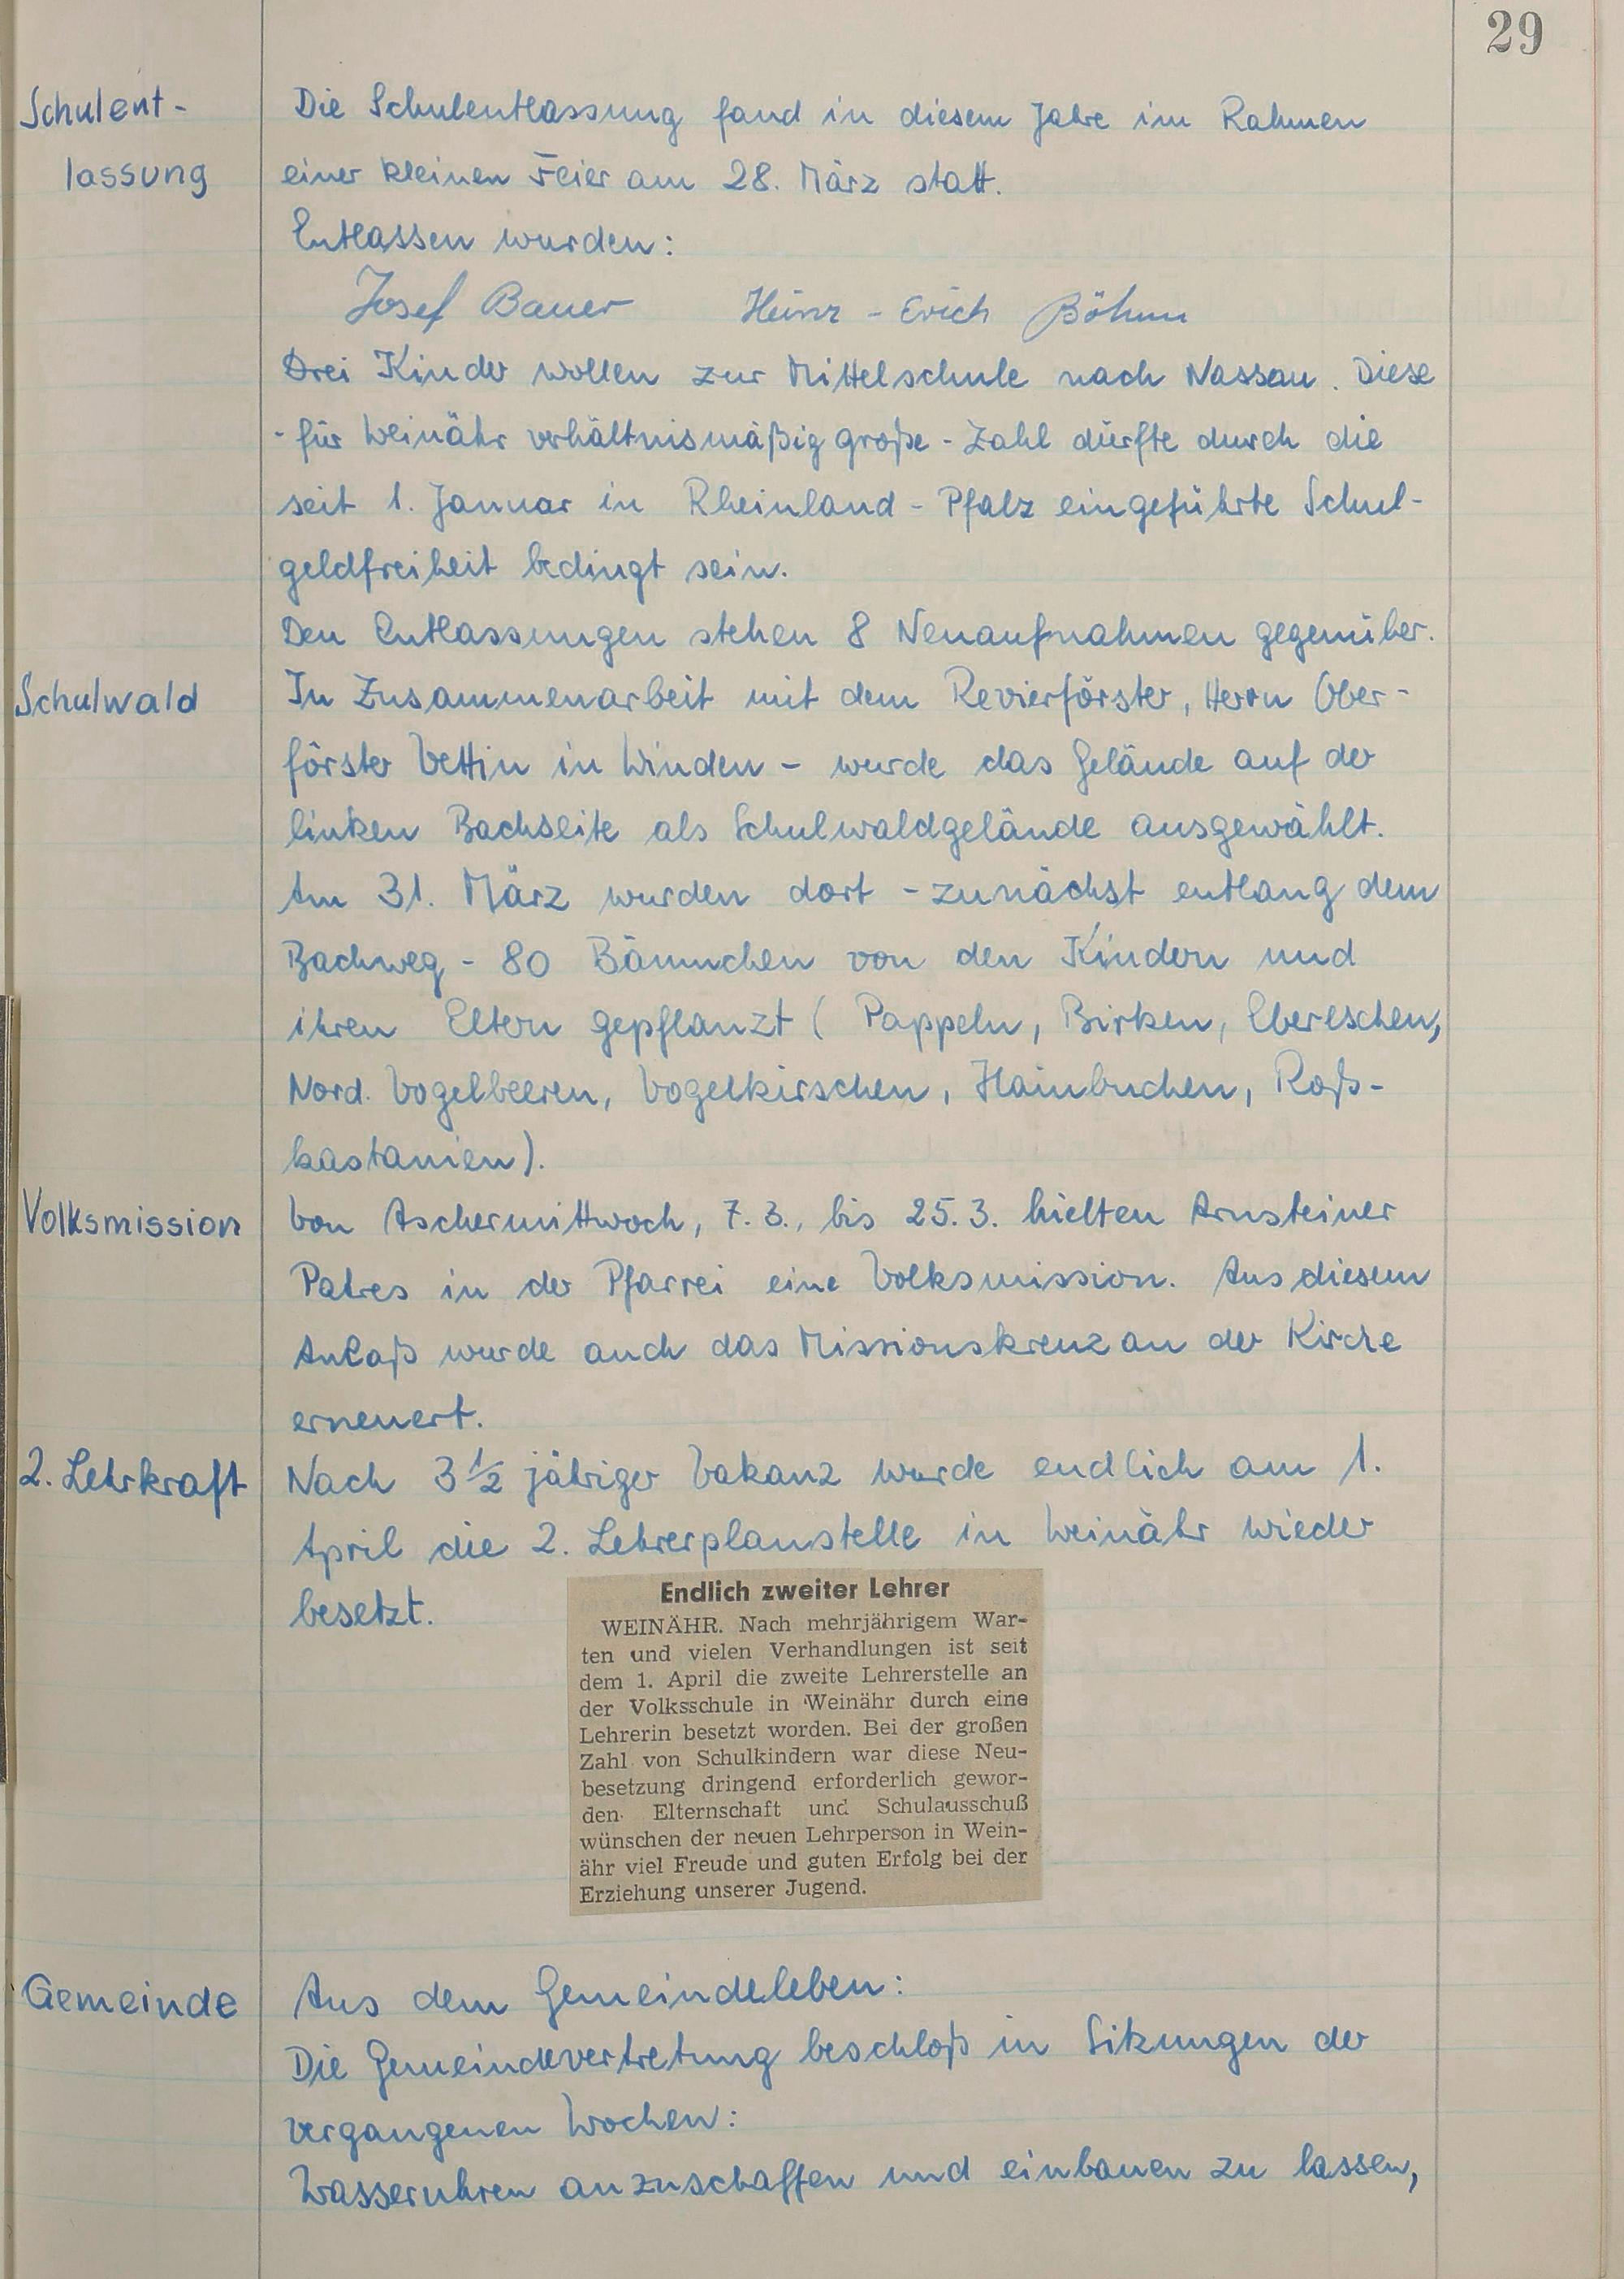 29
Schulent-
lassung
Die Schulentlassung fand in diesem Jahre im Rahmen
einer kleinen Feier am 28. März statt.
Entlassen wurden:
Josef Bauer Heinz - Erich Böhm
Drei Kinder wollen zur Mittelschule nach Nassau. Diese
- für Weinähr verhältnismäßig große - Zahl dürfte durch die
seit 1. Januar in Rheinland - Pfalz eingeführte Schul-
geldfreiheit bedingt sein.
Den Entlassungen stehen 8 Neuaufnahmen gegenüber.
Schulwald
In Zusammenarbeit mit dem Revierförster, Herrn Ober-
förster Vettin in Winden - wurde das Gelände auf der
linken Bachseite als Schulwaldgelände ausgewählt.
Am 31. März wurden dort - zunächst entlang dem
Bachweg - 80 Bäumchen von den Kindern und
ihren Eltern gepflanzt ( Pappeln, Birken, Ebereschen,
Nord. Vogelbeeren, Vogelkirschen, Hainbuchen, Roß-
kastanien).
Volksmission
Von Aschermittwoch, 7. 3., bis 25. 3. hielten Arnsteiner
Patres in der Pfarrei eine Volksmission. Aus diesem
Anlaß wurde auch das Missionskreuz an der Kirche
erneuert.
2. Lehrkraft
Nach 3 1/2 jähriger Vakanz wurde endlich am 1.
April die 2. Lehrerplanstelle in Weinähr wieder
besetzt.
Endlich zweiter Lehrer
WEINÄHR. Nach mehrjährigem War-
ten und vielen Verhandlungen ist seit
dem 1. April die zweite Lehrerstelle an
der Volksschule in Weinähr durch eine
Lehrerin besetzt worden. Bei der großen
Zahl von Schulkindern war diese Neu-
besetzung dringend erforderlich gewor-
den. Elternschaft und Schulausschuß
wünschen der neuen Lehrperson in Wein-
ähr viel Freude und guten Erfolg bei der
Erziehung unserer Jugend.
Gemeinde
Aus dem Gemeindeleben:
Die Gemeindevertretung beschloß in Sitzungen der
vergangenen Wochen:
Wasseruhren anzuschaffen und einbauen zu lassen,